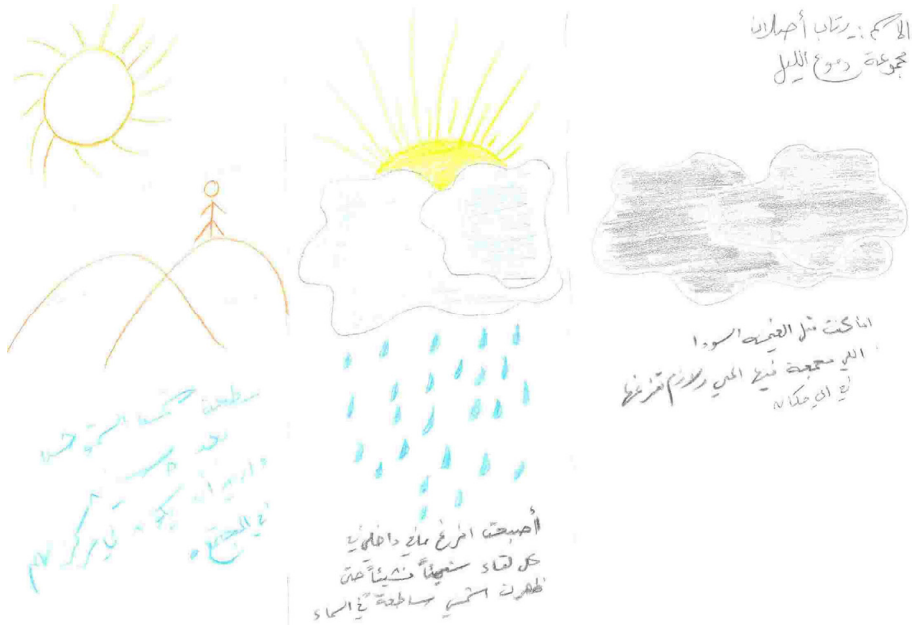 الاسم: رتاب أصلان
مجموعة دموع الليل
انا كنت مثل الغيمه السودا
اللي مجمعة فيها المي ولازم تفرغها
في اي مكان
أصبحت افرغ مافي داخلي في
كل لقاء شيئاً فشيئاً حتى
ظهرت الشمس ساطعة في السماء
سطعت شمس
بعد
واريد أن يكون لي مركز مهم
في المجتمع.